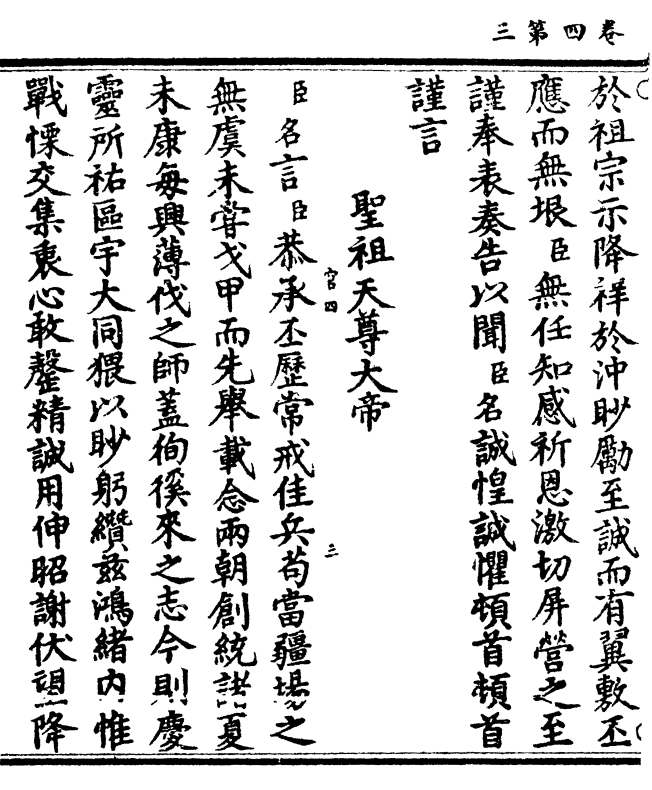 三第四卷
於祖宗示降祥於沖眇勵至誠而有翼敷丕
應而無垠臣無任知感祈恩激切屏營之至
謹奉表奏告以聞臣名誠惶誠懼頓首頓首
謹言
聖祖天尊大帝
宫四
三
臣名言臣恭承丕歷常戒佳兵苟當疆埸之
無虞未嘗戈甲而先舉載念兩朝創統諸夏
未康每興薄伐之師蓋徇徯來之志今則慶
靈所祐區宇大同猥以眇躬纘茲鴻緒內惟
戰慄交集衷心敢罄精誠用伸昭謝伏望降